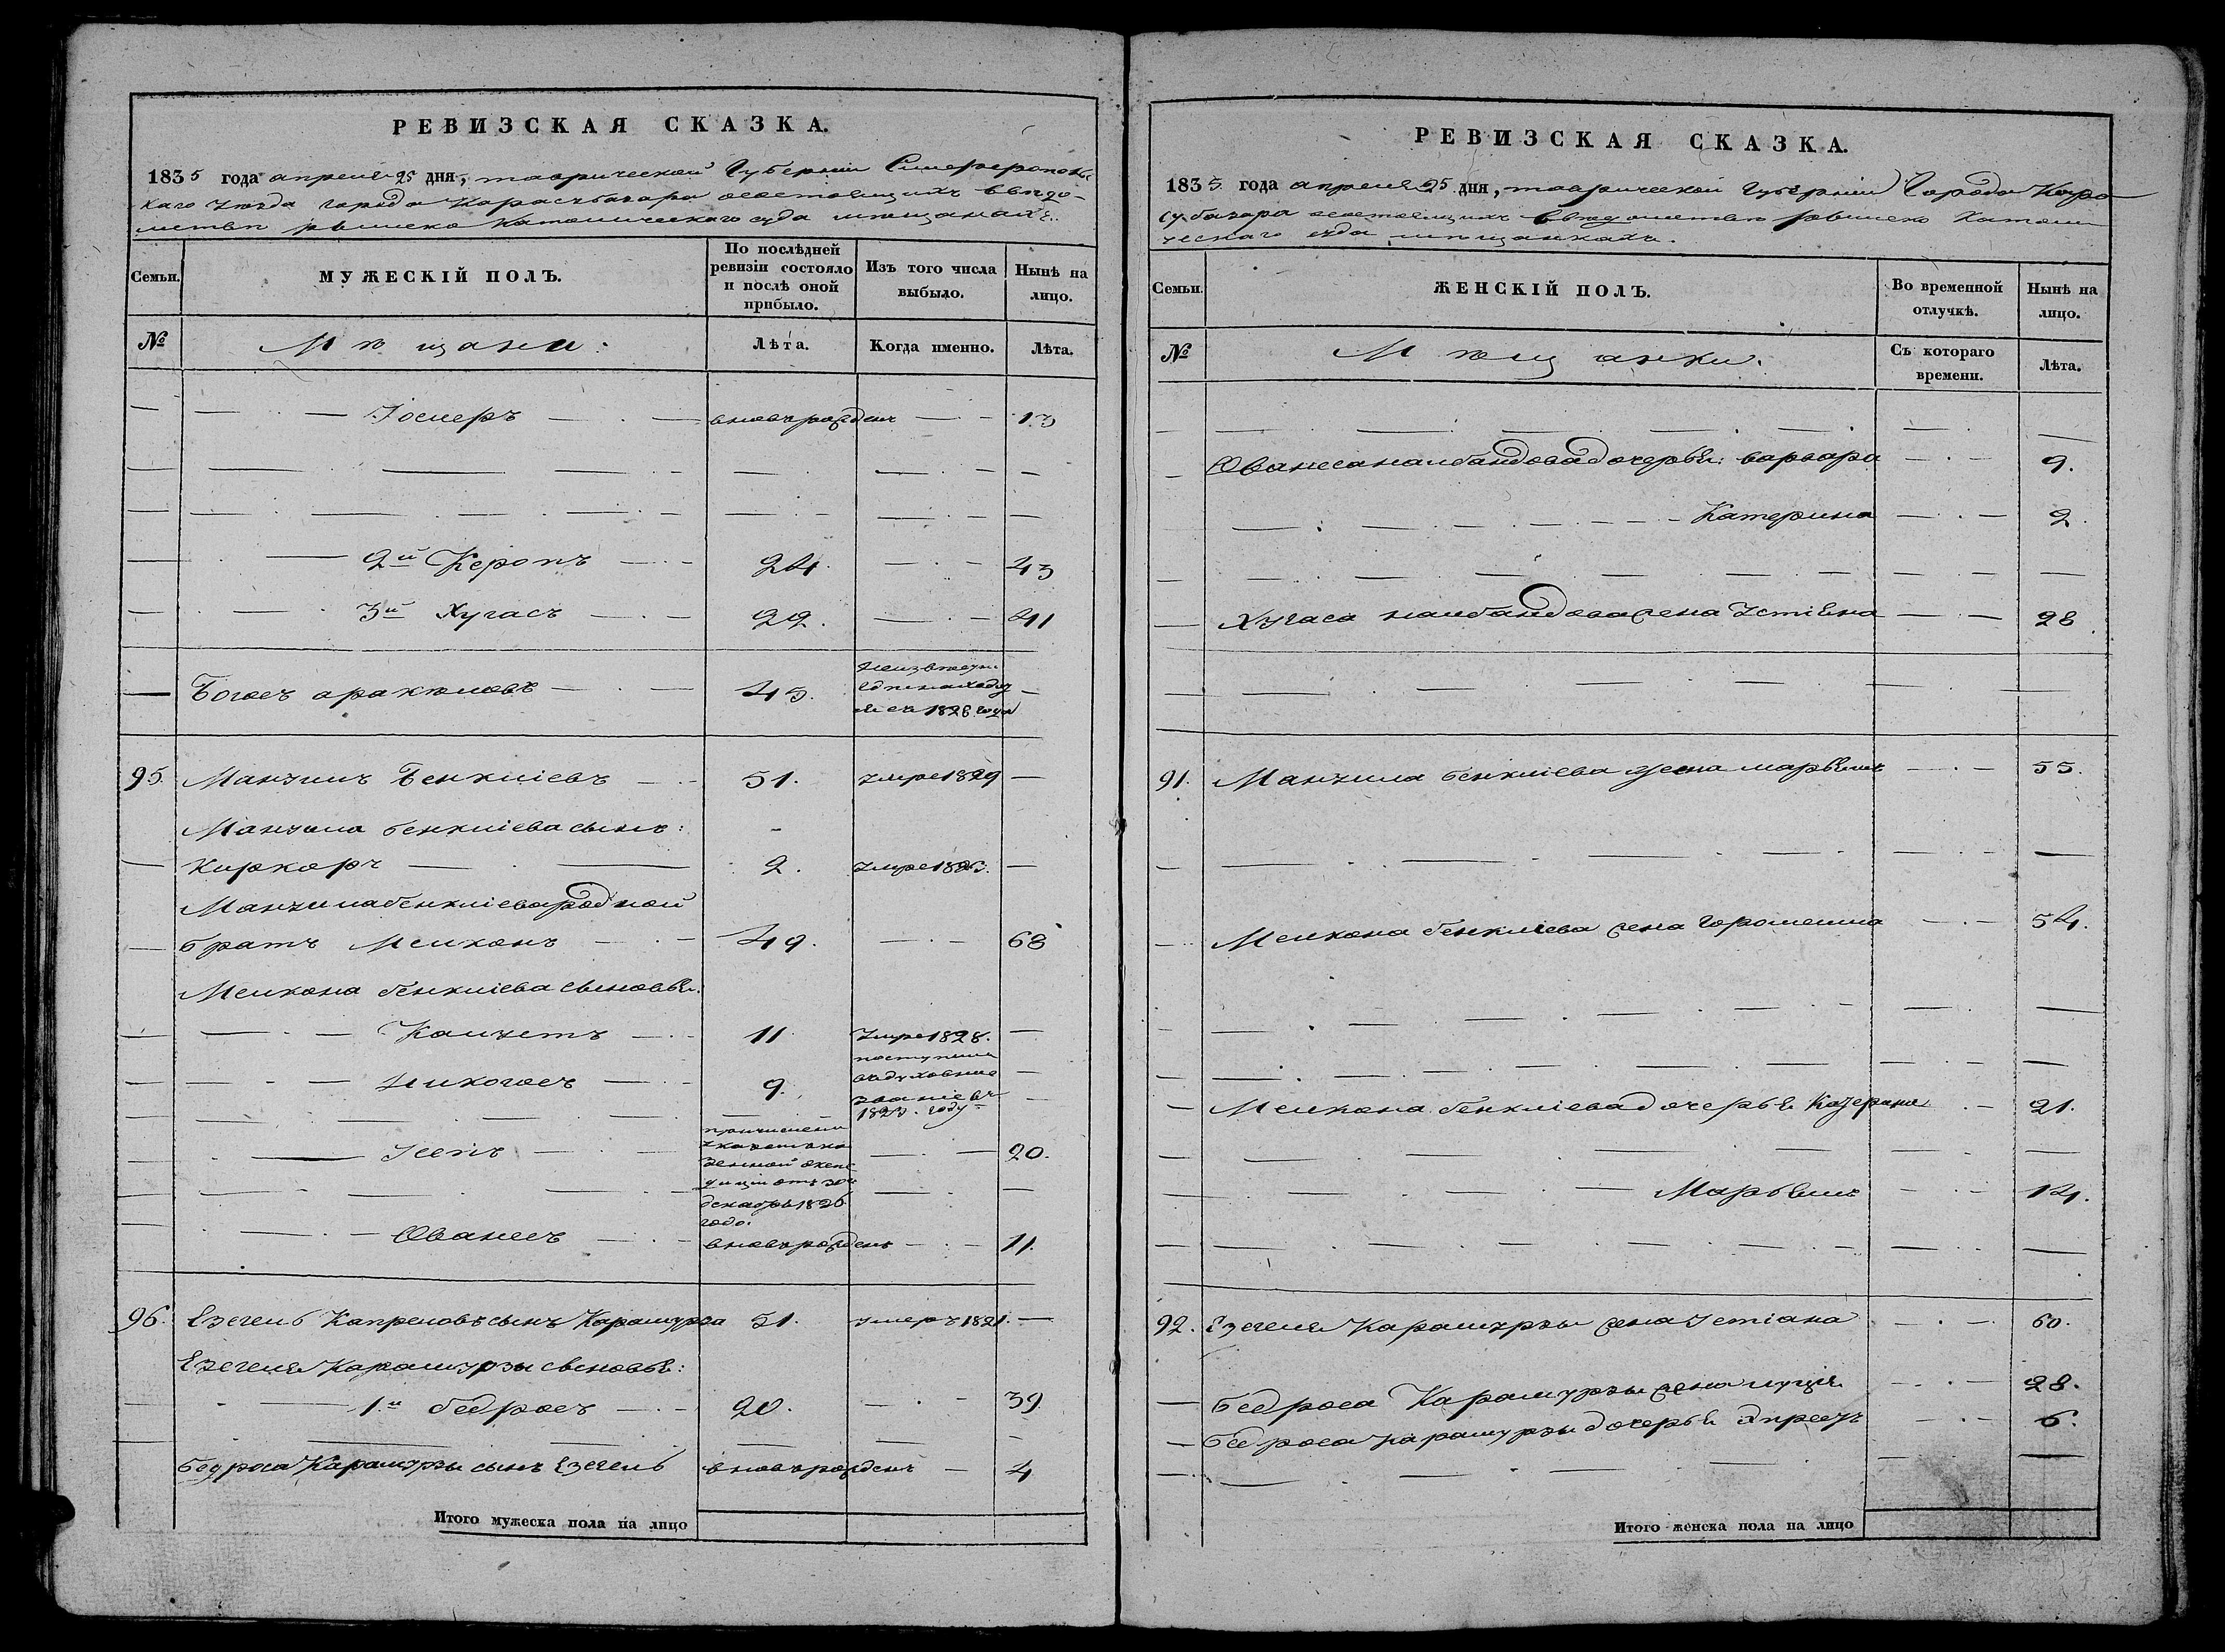 РЕВИЗСКАЯ СКАЗКА.
1835 года апреля 25 дня, таврической Губерніи Симферополь-
скаго уѣзда города Карасубазара состоящихъ в вѣдо-
мствѣ римско Католическаго суда мещанахъ.
Семьи.
МУЖЕСКІЙ ПОЛЪ.
По послѣдней ревизіи состояло и послѣ оной прибыло.
Изъ того числа выбыло.
Нынѣ на лицо.
№
Мѣщани:
Лѣта.
Когда именно.
Лѣта.
— Іосиеръ — вновь рожденъ — 13
— 2й Керопъ — 24. — 43
— 3й Хугасъ — 22. — 41
— Богосъ аракѣловъ — 45. —
съ 1826 года
95. Манзилъ Бенкліевъ — 51. умре 1829 —
Манзила бенкліева сынъ:
— Киркоръ — 2. умре 1825. —
Манзила бенкліева родной
— братъ Мелконъ — 49. — 68
Мелкона бенкліева сыновья.
— Калустъ — 11 умре 1828. —
— Никогосъ — 9. поступилъ
въ духовное
званіе въ
1823. году
— Усепъ — причисленъ 20.
декабря 1826
года.
— Ованесъ — вновь рожденъ — 11.
96. Езегель Капреловъ сынъ Карамурза 51. умеръ 1821. —
Езегеля Карамурзы сыновья:
— 1й бедросъ — 20. — 39
бедроса Карамурзы сынъ Езегель вновь рожденъ — 4
Итого мужеска пола на лицо
РЕВИЗСКАЯ СКАЗКА.
1835 года апреля 25 дня, таврической Губерніи Города Кара
субазара состоящихъ в вѣдомствѣ римско Католи
ческаго суда мѣщанкахъ.
Семьи.
ЖЕНСКІЙ ПОЛЪ.
Во временной отлучкѣ.
Нынѣ на лицо.
№
Мѣщанки.
Съ котораго времени.
Лѣта.
— Ованеса налбандова дочерья: варвара — 9.
— Катерина — 2.
— Хугаса налбандова жена Устіяна — 28
91. Манзила бенкліева жена марьямъ — 55.
— Мелкона бенкліева жена — 54.
— Мелкона бенкліева дочерья — 21.
— Марьямъ — 14.
92. Езегеля Карамурзы жена Устіана — 60.
— бедроса Карамурзы жена луція — 28.
— бедроса карамурзы дочерья — 6.
Итого женска пола на лицо